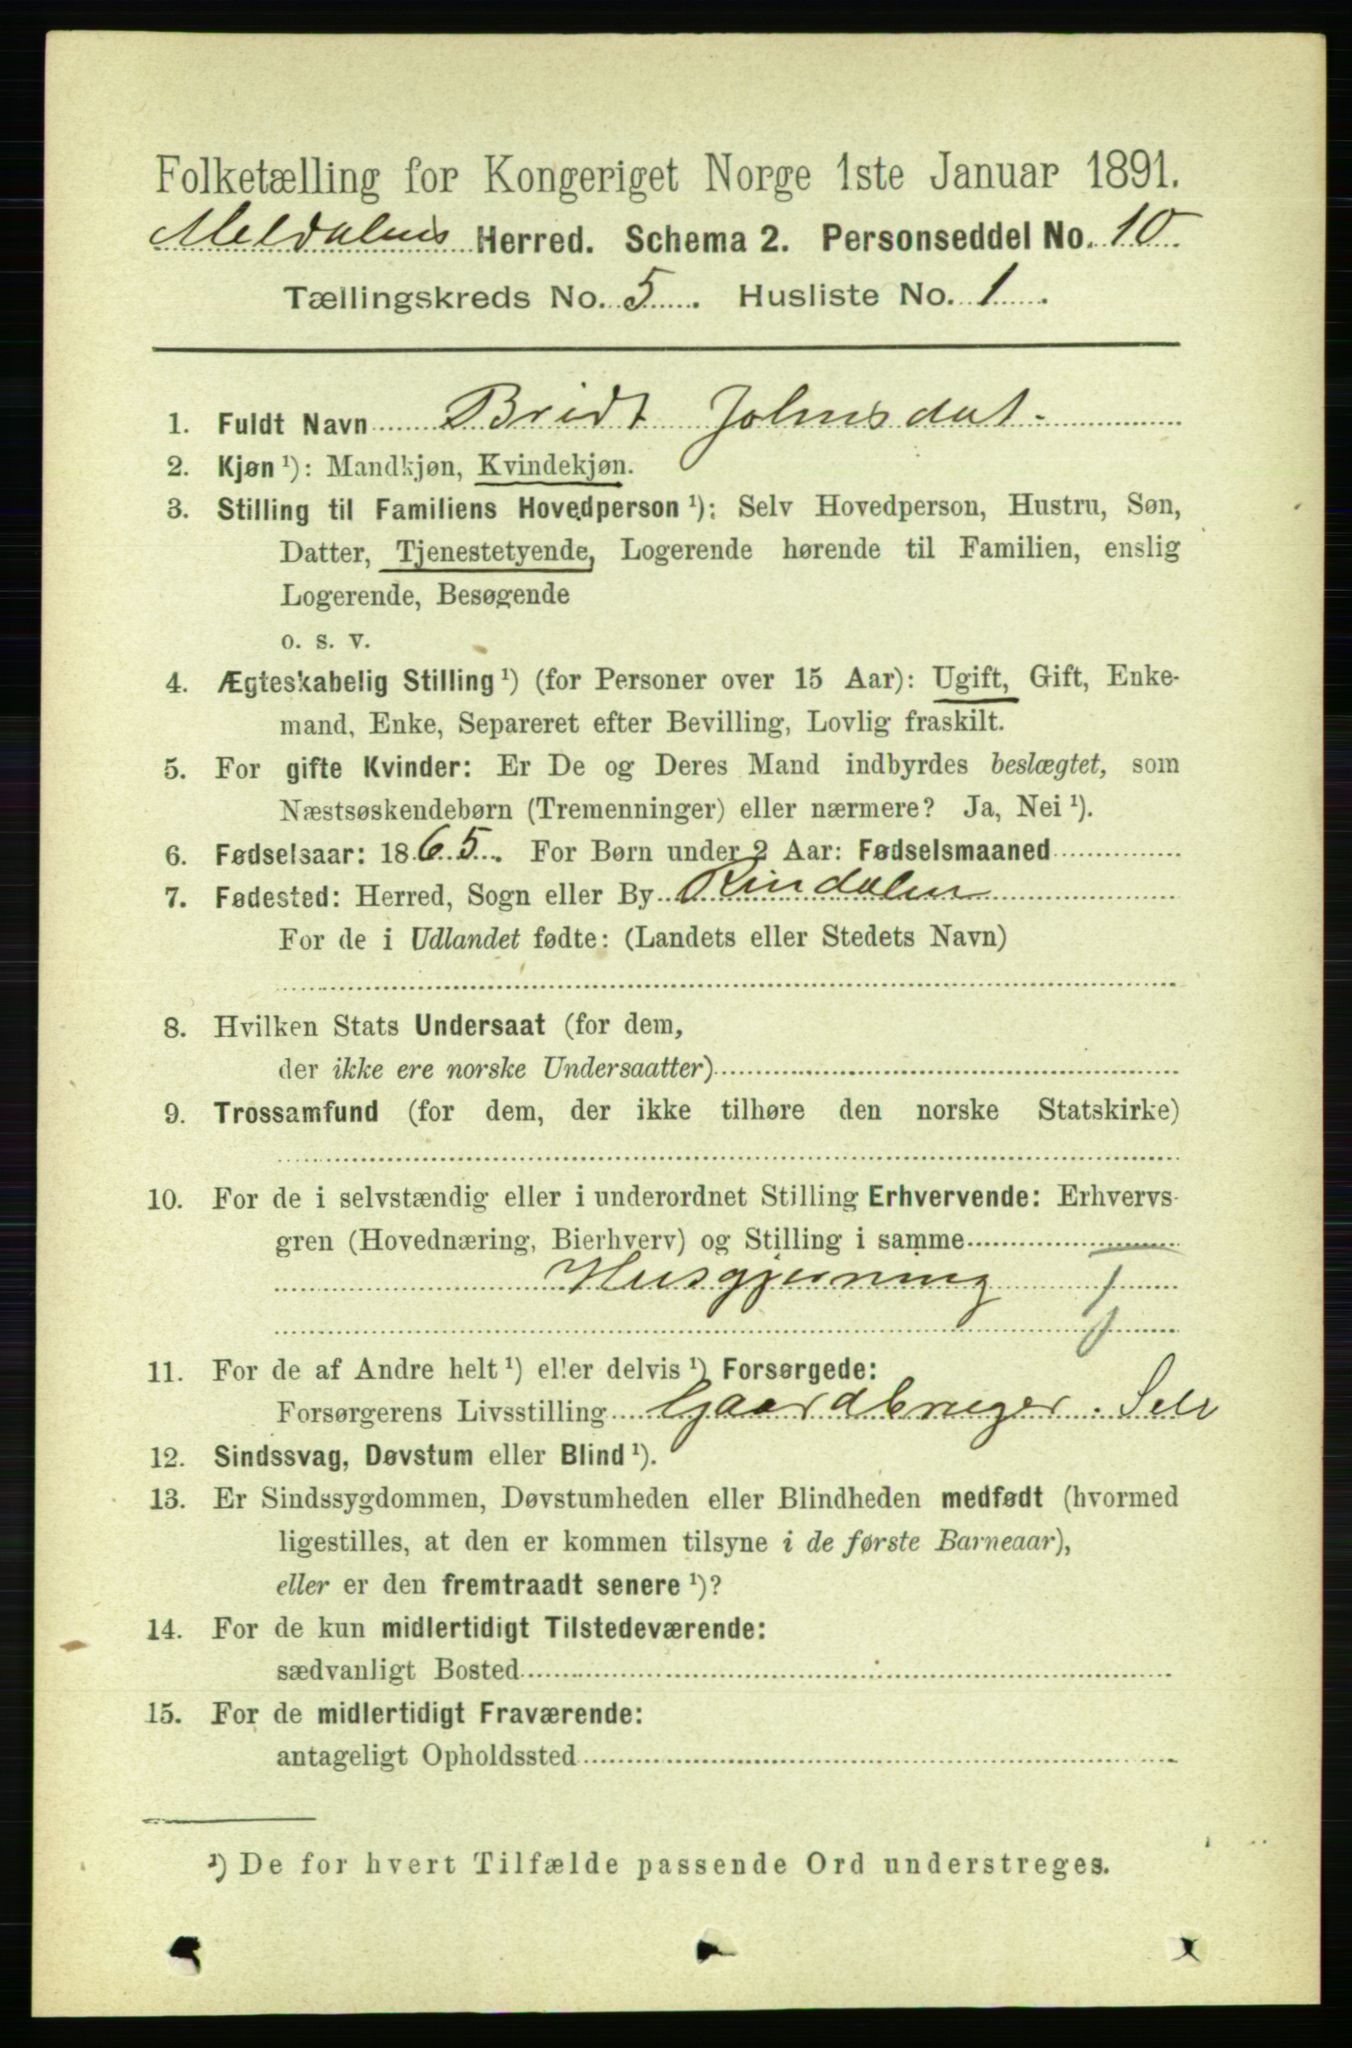 Folketælling for Kongeriget Norge 1ste Januar 1891.
Meldalens Herred. Schema 2. Personseddel No. 10.
Tællingskreds No. 5. Husliste No. 1.
1. Fuldt Navn Bridt Johnsdat.
2. Kjøn ¹): Mandkjøn, Kvindekjøn.
3. Stilling til Familiens Hovedperson ¹): Selv Hovedperson, Hustru, Søn,
Datter, Tjenestetyende, Logerende hørende til Familien, enslig
Logerende, Besøgende
o. s. v.
4. Ægteskabelig Stilling ¹) (for Personer over 15 Aar): Ugift, Gift, Enke-
mand, Enke, Separeret efter Bevilling, Lovlig fraskilt.
5. For gifte Kvinder: Er De og Deres Mand indbyrdes beslægtet, som
Næstsøskendebørn (Tremenninger) eller nærmere? Ja, Nei ¹).
6. Fødselsaar: 1865. For Børn under 2 Aar: Fødselsmaaned
7. Fødested: Herred, Sogn eller By Rindalen
For de i Udlandet fødte: (Landets eller Stedets Navn)
8. Hvilken Stats Undersaat (for dem,
der ikke ere norske Undersaatter)
9. Trossamfund (for dem, der ikke tilhøre den norske Statskirke)
10. For de i selvstændig eller i underordnet Stilling Erhvervende: Erhvervs-
gren (Hovednæring, Bierhverv) og Stilling i samme
Husgjerning
11. For de af Andre helt ¹) eller delvis ¹) Forsørgede:
Forsørgerens Livsstilling Gaardbruger. Selv
12. Sindssvag, Døvstum eller Blind ¹).
13. Er Sindssygdommen, Døvstumheden eller Blindheden medfødt (hvormed
ligestilles, at den er kommen tilsyne i de første Barneaar),
eller er den fremtraadt senere ¹)?
14. For de kun midlertidigt Tilstedeværende:
sædvanligt Bosted
15. For de midlertidigt Fraværende:
antageligt Opholdssted
¹) De for hvert Tilfælde passende Ord understreges.